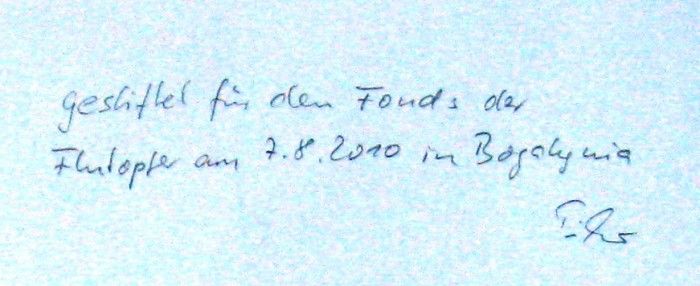 gestiftet für den Fonds der
Flutopfer am 7.8.2010 in Bogatynia